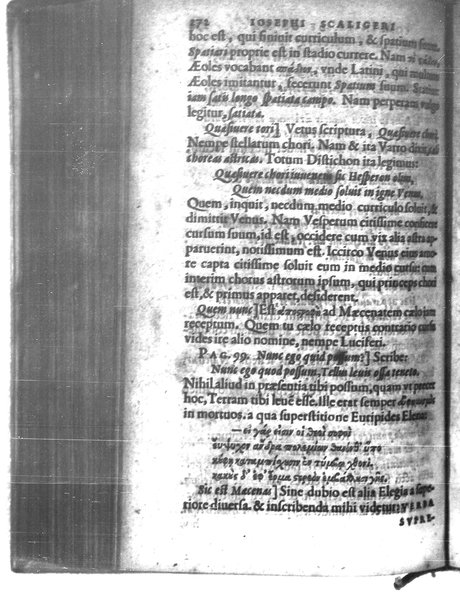 272 IOSEPHI SCALIGERI
hoc est, qui finiuit curriculum, & spatium suum.
Spatiari proprie est in stadio currere. Nam
Æoles vocabant vnde Latini, qui multum
Æoles imitantur, fecerunt Spatium suum.
iam satis longo spatiata campo. Nam perperam vulgo
legitur, satiata.
Quæsiuere tori] Vetus scriptura, Quæsiuere chori,
Nempe stellarum chori. Nam & ita Varro dixit,
choreas astricas. Totum Distichon ita legimus:
Quæsiuere chori iuuenem sic Hesperon olim,
Quem necdum medio soluit in igne Venus.
Quem, inquit, necdum medio curriculo soluit, &
dimittit Venus. Nam Vesperum citissime conficere
cursum suum, id est, occidere cum vix alia astra ap-
paruerint, notissimum est. Iccirco Venus eius amo-
re capta citissime soluit eum in medio cursu: cum
interim chorus astrorum ipsum, qui princeps chori
est, & primus apparet, desiderent.
Quem nunc] Est ad Mæcenatem cælo iam
receptum. Quem tu cælo receptus contrario curru
vides ire alio nomine, nempe Luciferi.
PAG. 99. Nunc ego quid possum?] Scribe:
Nunc ego quod possum. Tellus leuis ossa teneto.
Nihil aliud in præsentia tibi possum, quam vt precer
hoc, Terram tibi leuē esse. Ille erat semper
in mortuos. a qua superstitione Euripides Elena:
— εἰ γάρ εἰσιν οἱ θεοὶ σοφοὶ
εὔψυχον ἄνδρα πολεμίων θανόνθ' ὕπο
κούφῃ καταμπίσχουσιν ἐν τύμβῳ χθονί,
κακοὺς δ' ἐφ' ἕρμα στερεὸν ἐμβάλλουσι γῆς.
Sic est Mæcenas] Sine dubio est alia Elegia a supe-
riore diuersa. & inscribenda mihi videtur: VERBA
SVPRE-